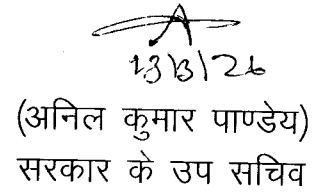 13/3/26
(अनिल कुमार पाण्डेय)
सरकार के उप सचिव